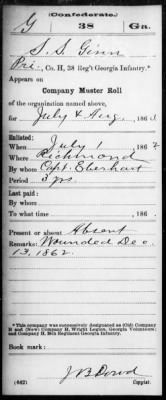 (Confederate.)
G 38 Ga.
S. S. Ginn
Pvt., Co. H, 38 Reg't Georgia Infantry.*
Appears on
Company Muster Roll
of the organization named above,
for July & Aug, 186
Enlisted:
When July 1, 1862
Where Richmond
By whom Capt. Eberhart
Period 3 yrs
Last paid:
By whom
To what time , 186 .
Present or absent Absent
Remarks: Wounded Dec.
13, 1862.
*This company was successively designated as (Old) Company
H and (New) Company H, Wright Legion, Georgia Volunteers;
and Company H, 38th Regiment Georgia Infantry.
Book mark:
J B Dowd
(642) Copyist.